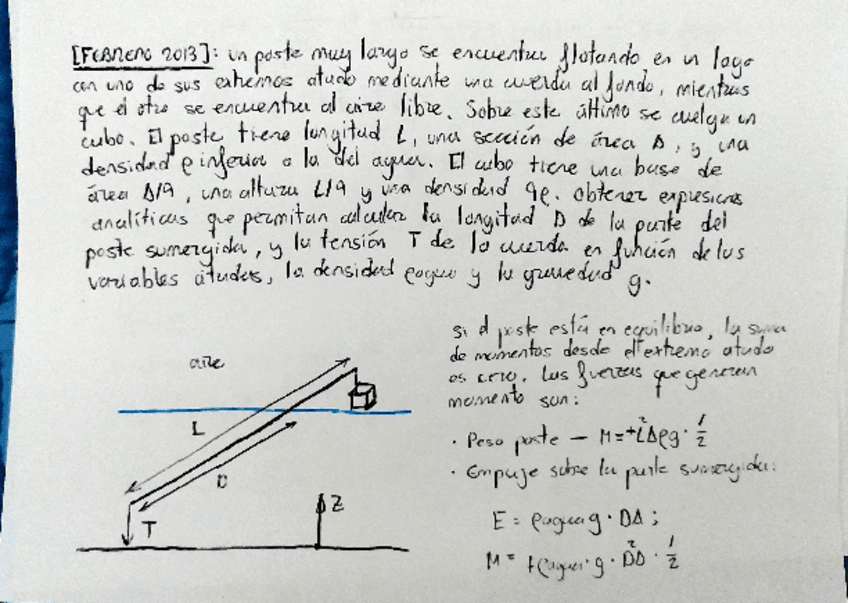 [FEBRERO 2013]: un poste muy largo se encuentra flotando en un lago
con uno de sus extremos atado mediante una cuerda al fondo, mientras
que el otro se encuentra al aire libre. Sobre este último se cuelga un
cubo. El poste tiene longitud L, una sección de área A, y una
densidad ρ inferior a la del agua. El cubo tiene una base de
área A/9, una altura L/9 y una densidad 9ρ. Obtener expresiones
analíticas que permitan calcular la longitud D de la parte del
poste sumergida, y la tensión T de la cuerda en función de las
variables citadas, la densidad ρagua y la gravedad g.
Si el poste está en equilibrio, la suma
de momentos desde el extremo atado
es cero. Las fuerzas que generan
momento son:
· Peso poste — M=+L²Aρg·1/2
· Empuje sobre la parte sumergida:
E = ρagua g · DA;
M = +ρagua·g·D²A·1/2
aire
L
D
T
Z